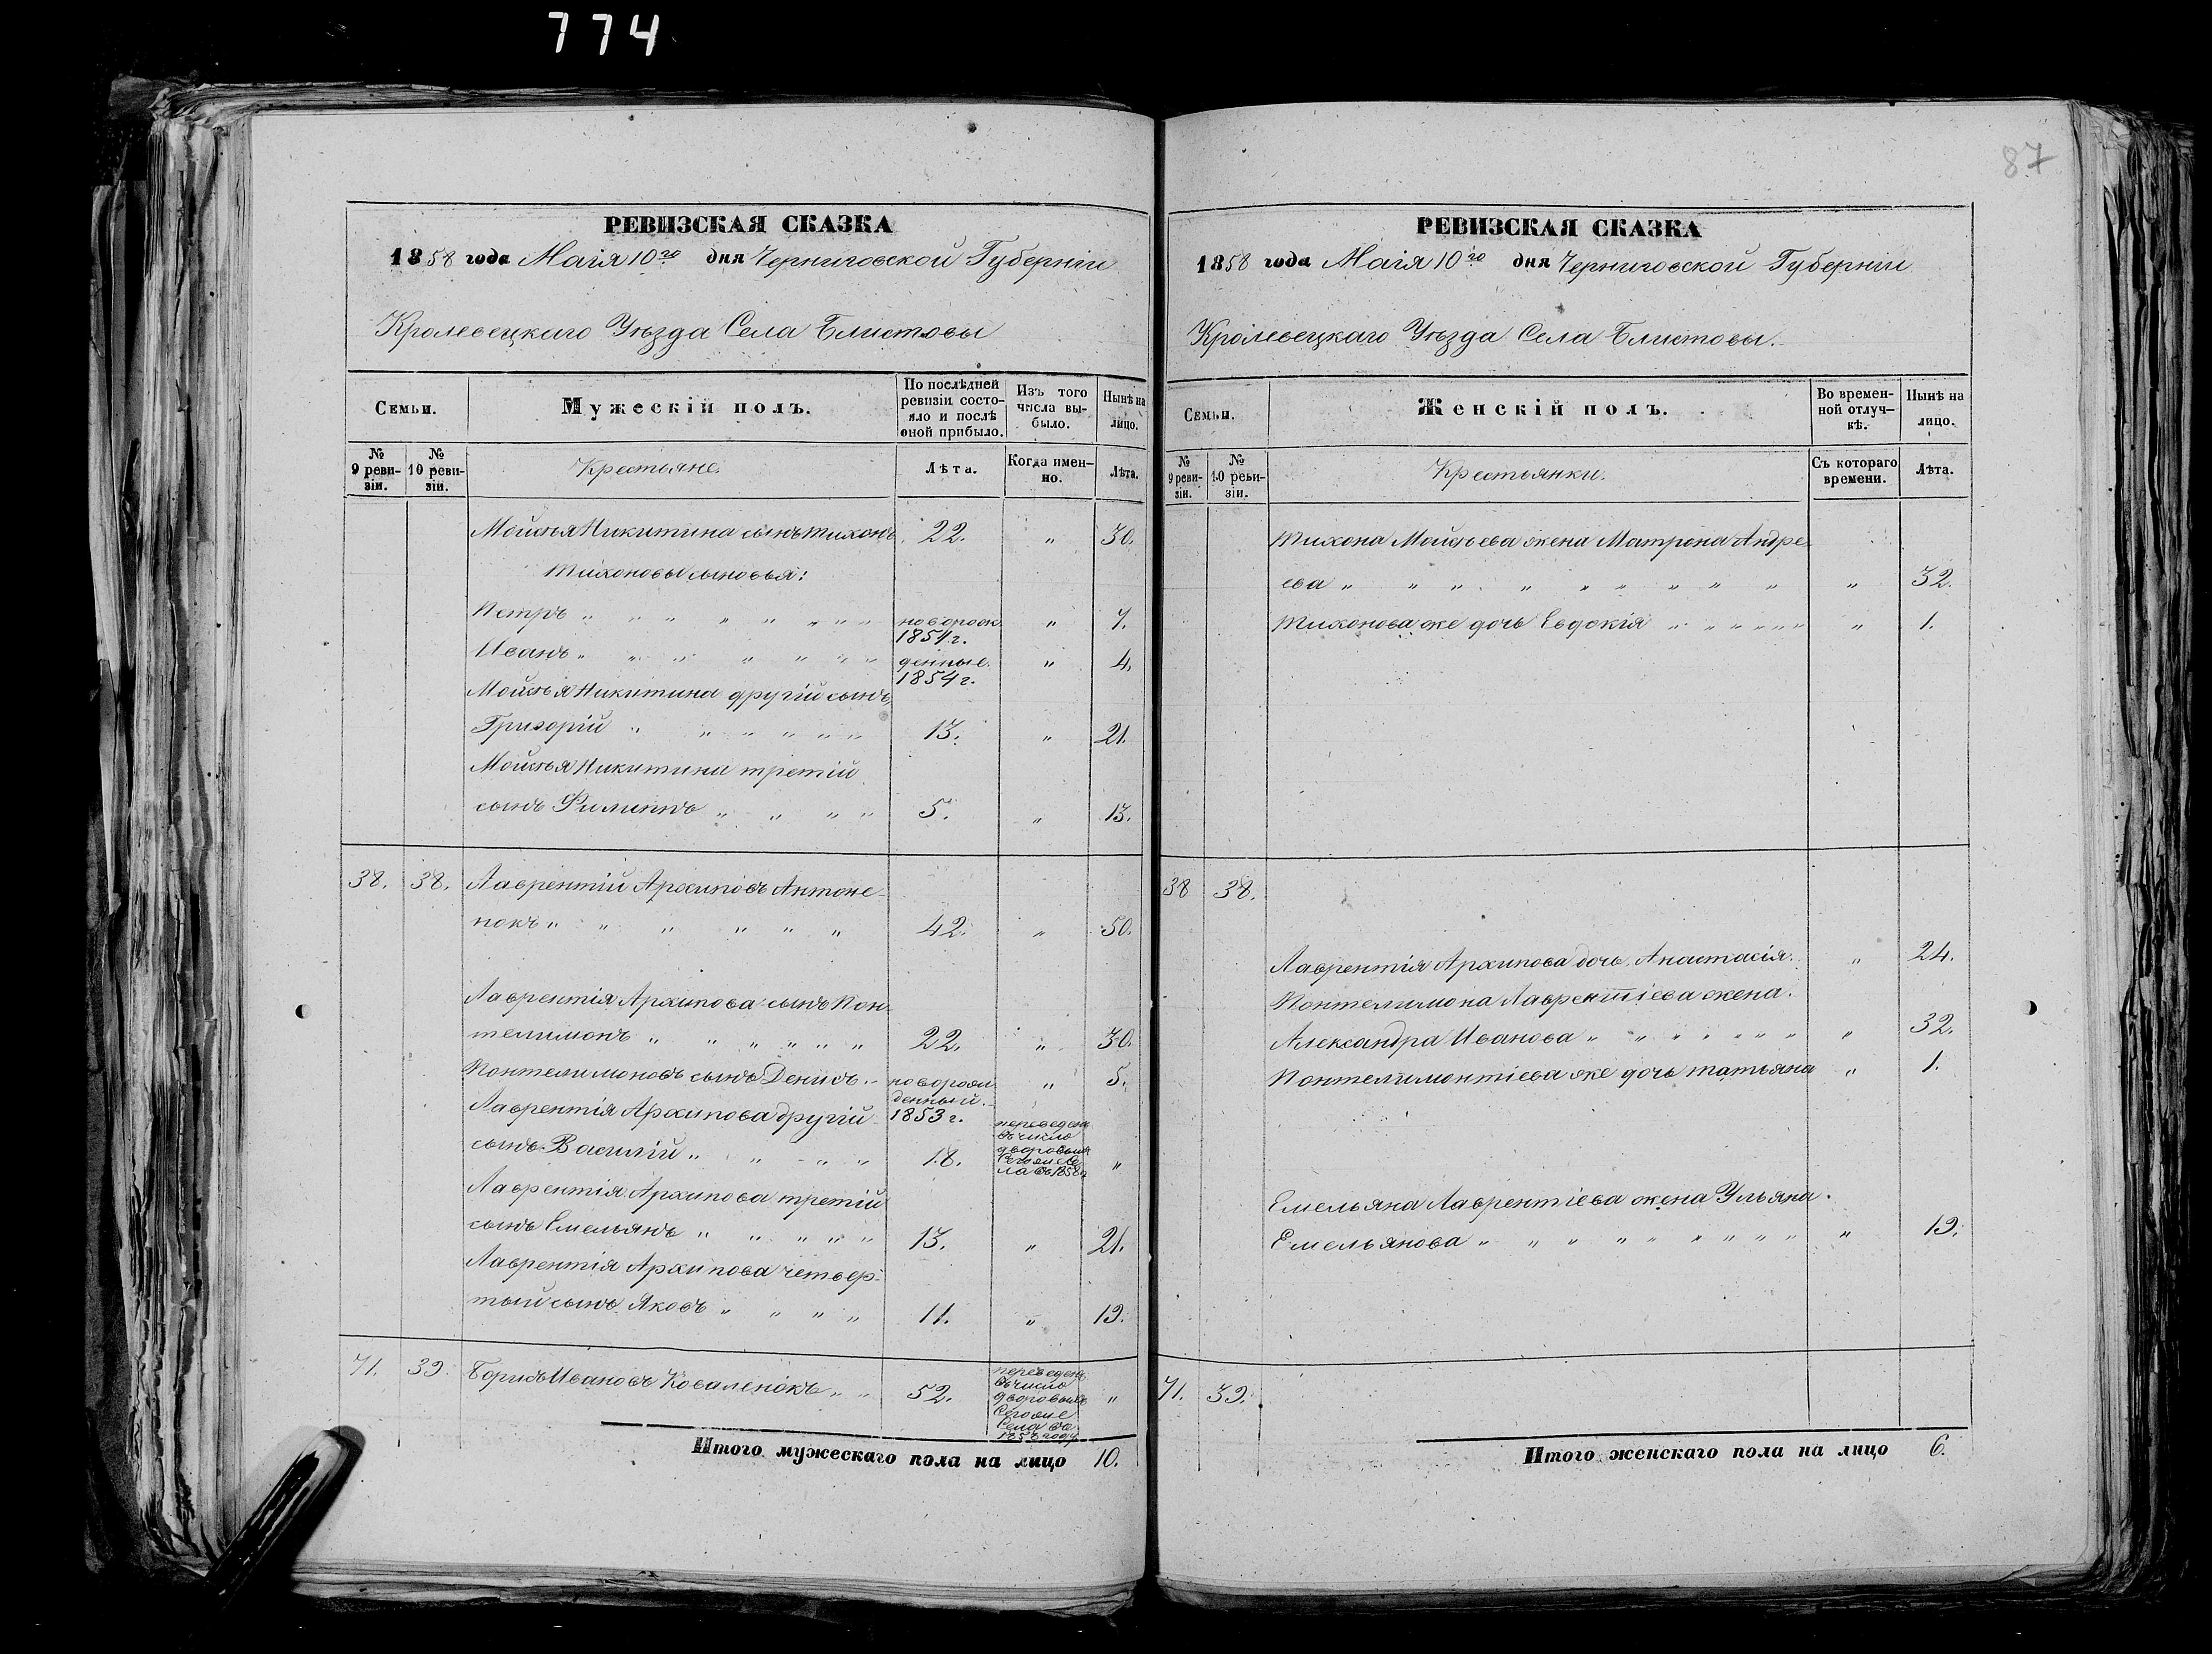 774
87
РЕВИЗСКАЯ СКАЗКА
1858 года Маія 10го дня Черниговской Губерніи
Кролевецкаго Уѣзда Села Блистовы
Семьи.
Мужескій полъ.
По послѣдней ревизіи состояло и послѣ оной прибыло.
Изъ того числа выбыло.
Нынѣ на лицо.
№ 9 ревизіи.
№ 10 ревизіи.
Крестьяне.
Лѣта.
Когда именно.
Лѣта.
Мойсѣя Никитина сынъ Тихонъ 22. " 30.
Тихоновы сыновья:
Петръ " " " " " " " " новорож 1851 г. " 7.
Иванъ " " " " " " " денные 1854 г. " 4.
Мойсѣя Никитина другій сынъ
Григорій " " " " " " 13. " 21.
Мойсѣя Никитина третій
сынъ Филиппъ " " " " 5. " 13.
38. 38. Лаврентій Архиповъ Антоне-
нокъ " " " " " " 42. " 50.
Лаврентія Архипова сынъ Пон-
телимонъ " " " " " " 22. " 30.
Понтелимоновъ сынъ Денисъ " новорож " 5.
денный.
Лаврентія Архипова другій 1853 г.
сынъ Василій " " " " 18. переведенъ въ число дворовыхъ Сегоже Села въ 1858 г. "
Лаврентія Архипова третій
сынъ Емельянъ " " " " " 13. " 21.
Лаврентія Архипова четвер-
тый сынъ Яковъ " " " " 11. " 19.
71. 39. Борисъ Ивановъ Коваленокъ " " 52. переведенъ въ число дворовыхъ Сегоже Села въ 1858 году "
Итого мужескаго пола на лицо 10.
РЕВИЗСКАЯ СКАЗКА
1858 года Маія 10го дня Черниговской Губерніи
Кролевецкаго Уѣзда Села Блистовы.
Семьи.
Женскій полъ.
Во временной отлучкѣ.
Нынѣ на лицо.
№ 9 ревизіи.
№ 10 ревизіи.
Крестьянки.
Съ котораго времени.
Лѣта.
Тихона Мойсѣева жена Матрона Андре-
ева " " " " " " " " " " " 32.
Тихонова же дочь Евдокія " " " " " " " 1.
38 38.
Лаврентія Архипова дочь Анастасія. " 24.
Понтелимона Лаврентіева жена
Александра Иванова " " " " " " " " 32.
Понтелимонтіева же дочь татьяна " 1.
Емельяна Лаврентіева жена Ульяна
Емельянова " " " " " " " " " " 19.
71. 39.
Итого женскаго пола на лицо 6.